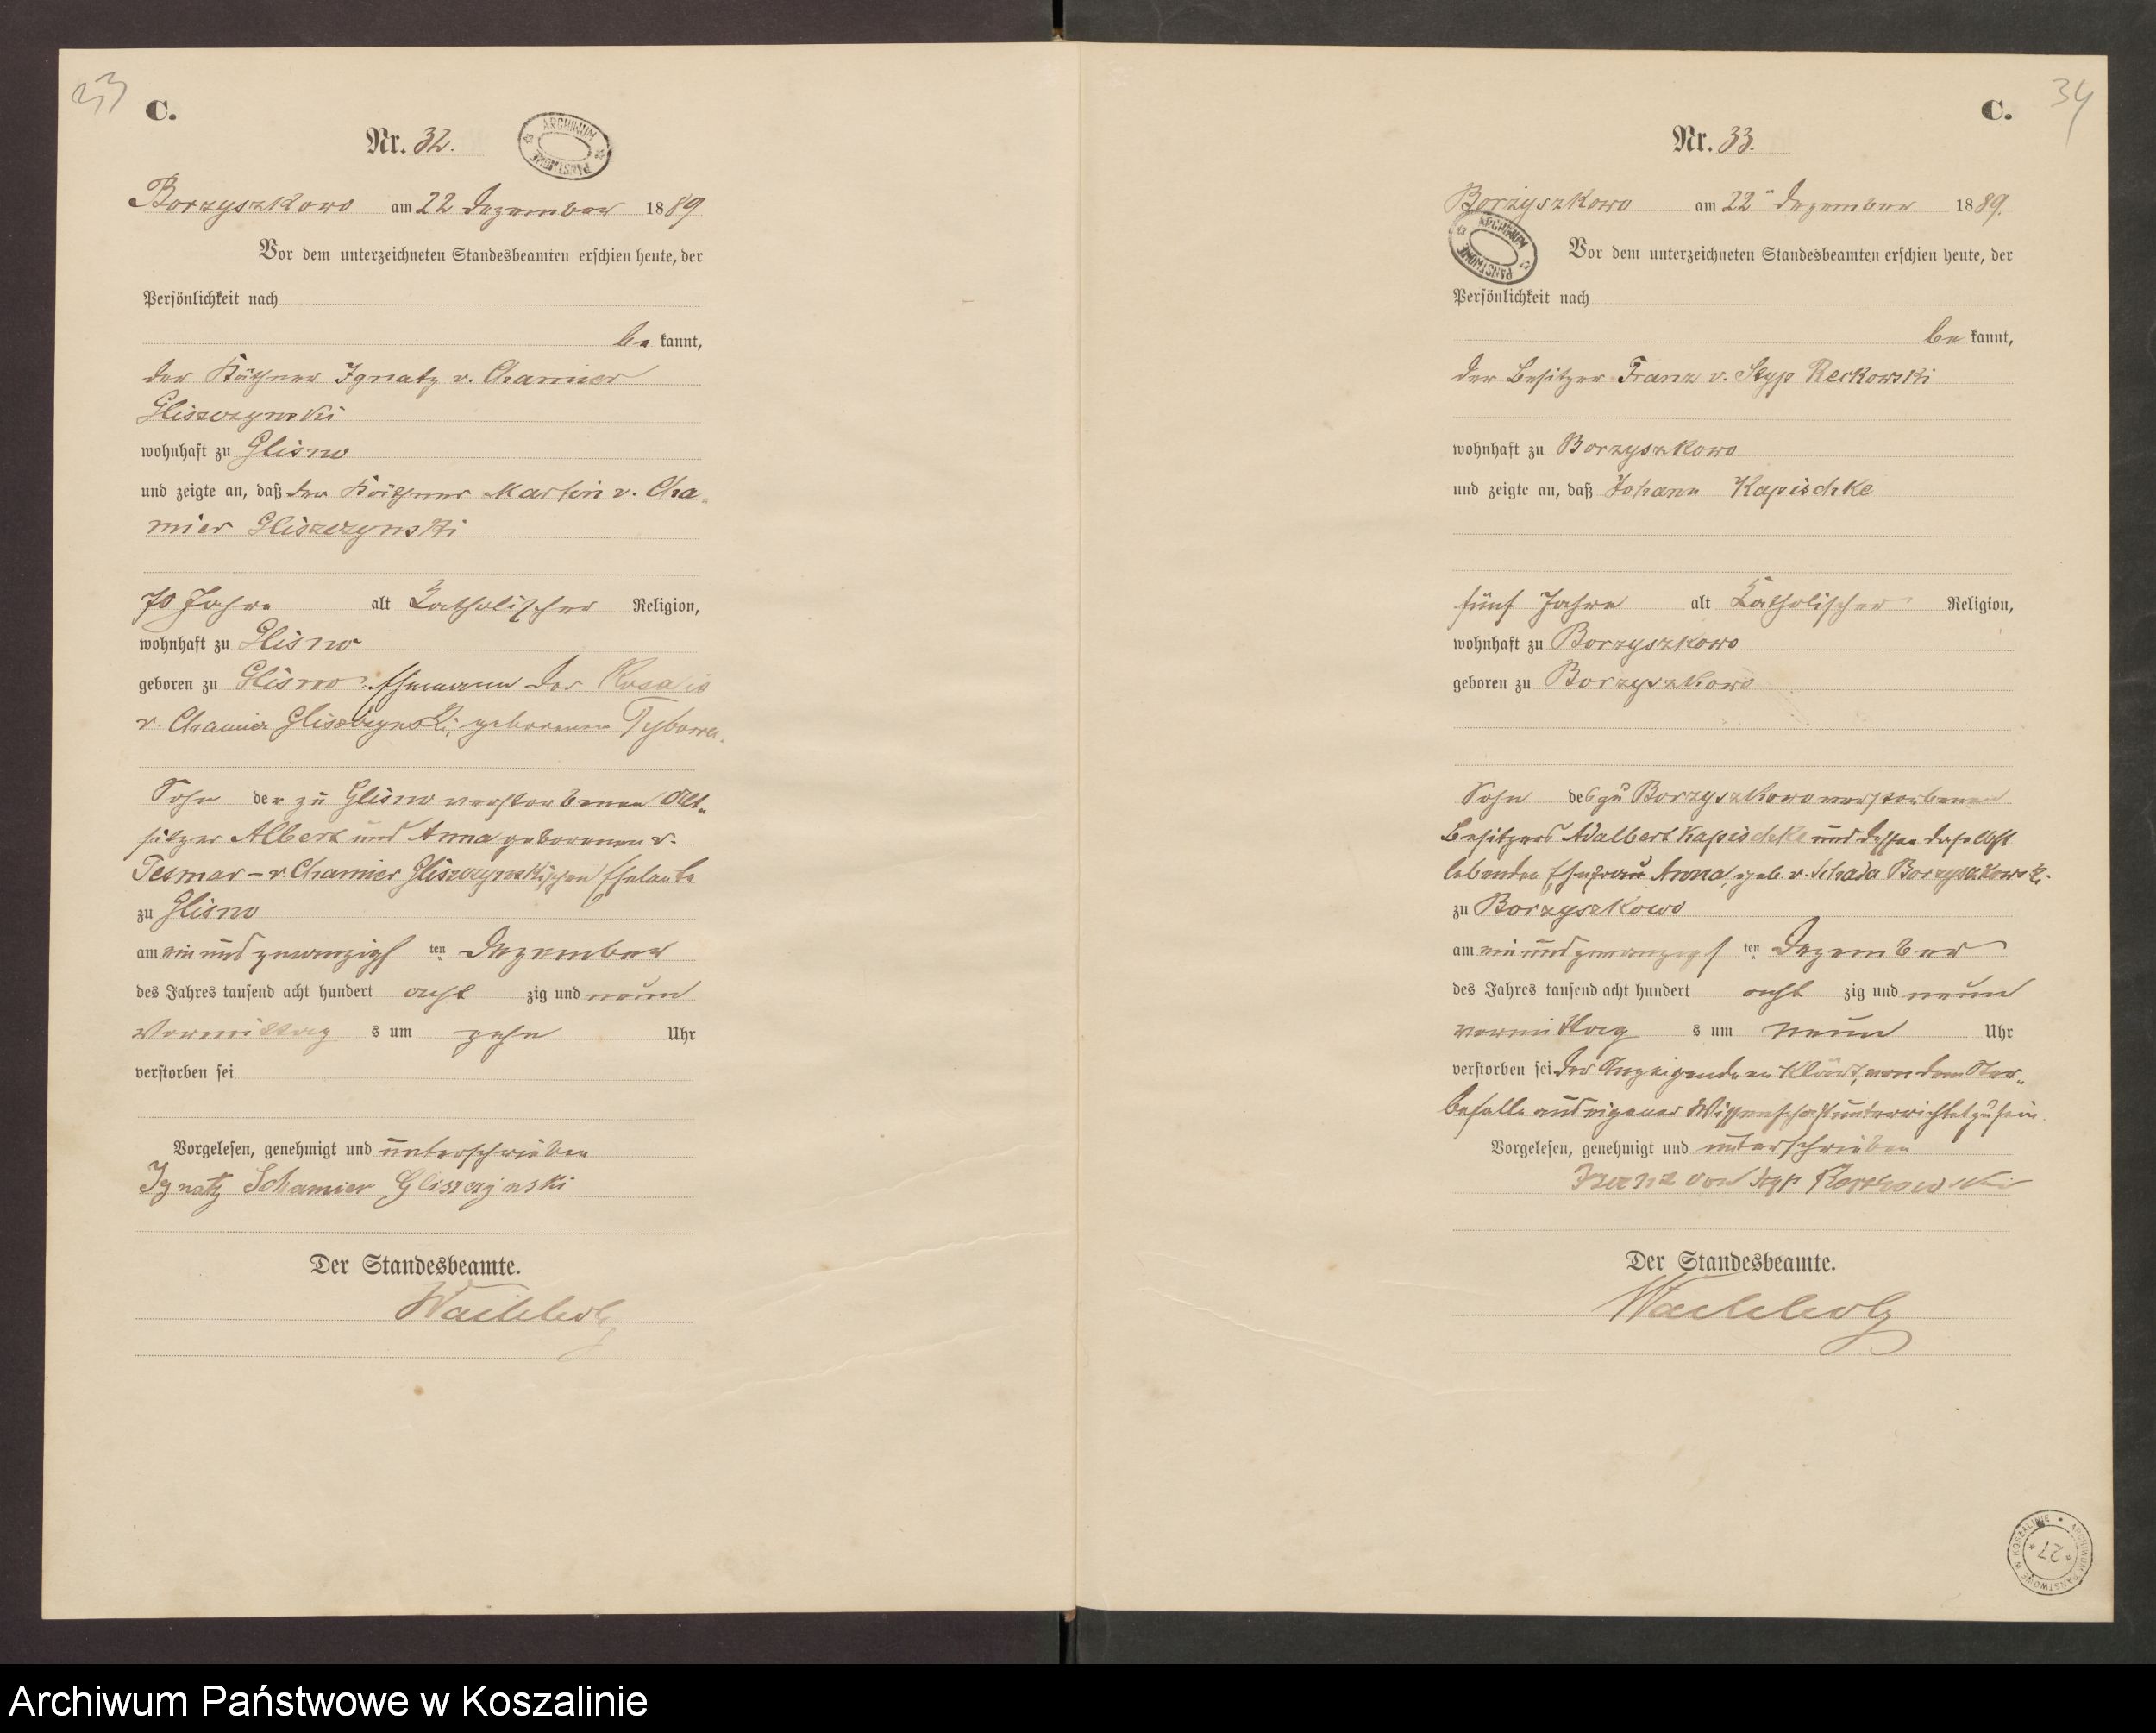 33
C.
Nr. 32.
ARCHIWUM PAŃSTWOWE
Borzyszkowo am 22 Dezember 1889
Vor dem unterzeichneten Standesbeamten erschien heute, der
Persönlichkeit nach
be kannt,
der Käthner Ignatz v. Chamier
Gliszczynski
wohnhaft zu Glisno
und zeigte an, daß der Käthner Martin v. Cha-
mier Gliszczynski
70 Jahre alt katholischer Religion,
wohnhaft zu Glisno
geboren zu Glisno, Ehemann der Rosalia
v. Chamier Gliszczynski, geborenen Tyborra.
Sohn der zu Glisno verstorbenen Alt-
sitzer Albert und Anna geborenen v.
Tesmar - v. Chamier Gliszczynskischen Eheleute
zu Glisno
am ein und zwanzigs ten Dezember
des Jahres tausend acht hundert acht zig und neun
Vormittag s um zehn Uhr
verstorben sei
Vorgelesen, genehmigt und unterschrieben
Ignatz Schamier Gliszczynski
Der Standesbeamte.
34
C.
Nr. 33.
Borzyszkowo am 22 Dezember 1889.
ARCHIWUM PAŃSTWOWE
Vor dem unterzeichneten Standesbeamten erschien heute, der
Persönlichkeit nach
be kannt,
der Besitzer Franz v. Styp Reckowski
wohnhaft zu Borzyszkowo
und zeigte an, daß Johann Kapischke
fünf Jahre alt katholischer Religion,
wohnhaft zu Borzyszkowo
geboren zu Borzyszkowo
Sohn des zu Borzyszkowo verstorbenen
Besitzers Adalbert Kapischke und dessen daselbst
lebenden Ehefrau Anna, geb. v. Schada Borzyszkowski
zu Borzyszkowo
am ein und zwanzigs ten Dezember
des Jahres tausend acht hundert acht zig und neun
vormittag s um neun Uhr
verstorben sei Der Anzeigende erklärt, von dem Ster-
befalle aus eigener Wissenschaft unterrichtet zu sein.
Vorgelesen, genehmigt und unterschrieben
Franz von Styp Reckowski
Der Standesbeamte.
ARCHIWUM PAŃSTWOWE W KOSZALINIE
* 27 *
Archiwum Państwowe w Koszalinie